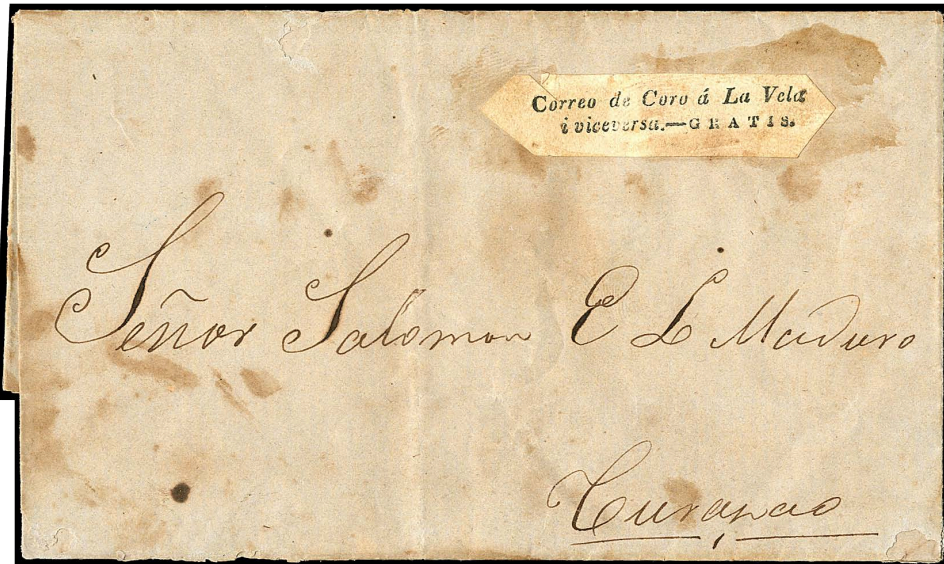 Correo de Coro á La Vela
i viceversa.—GRATIS.
Señor Salomon E L Maduro
Curaçao